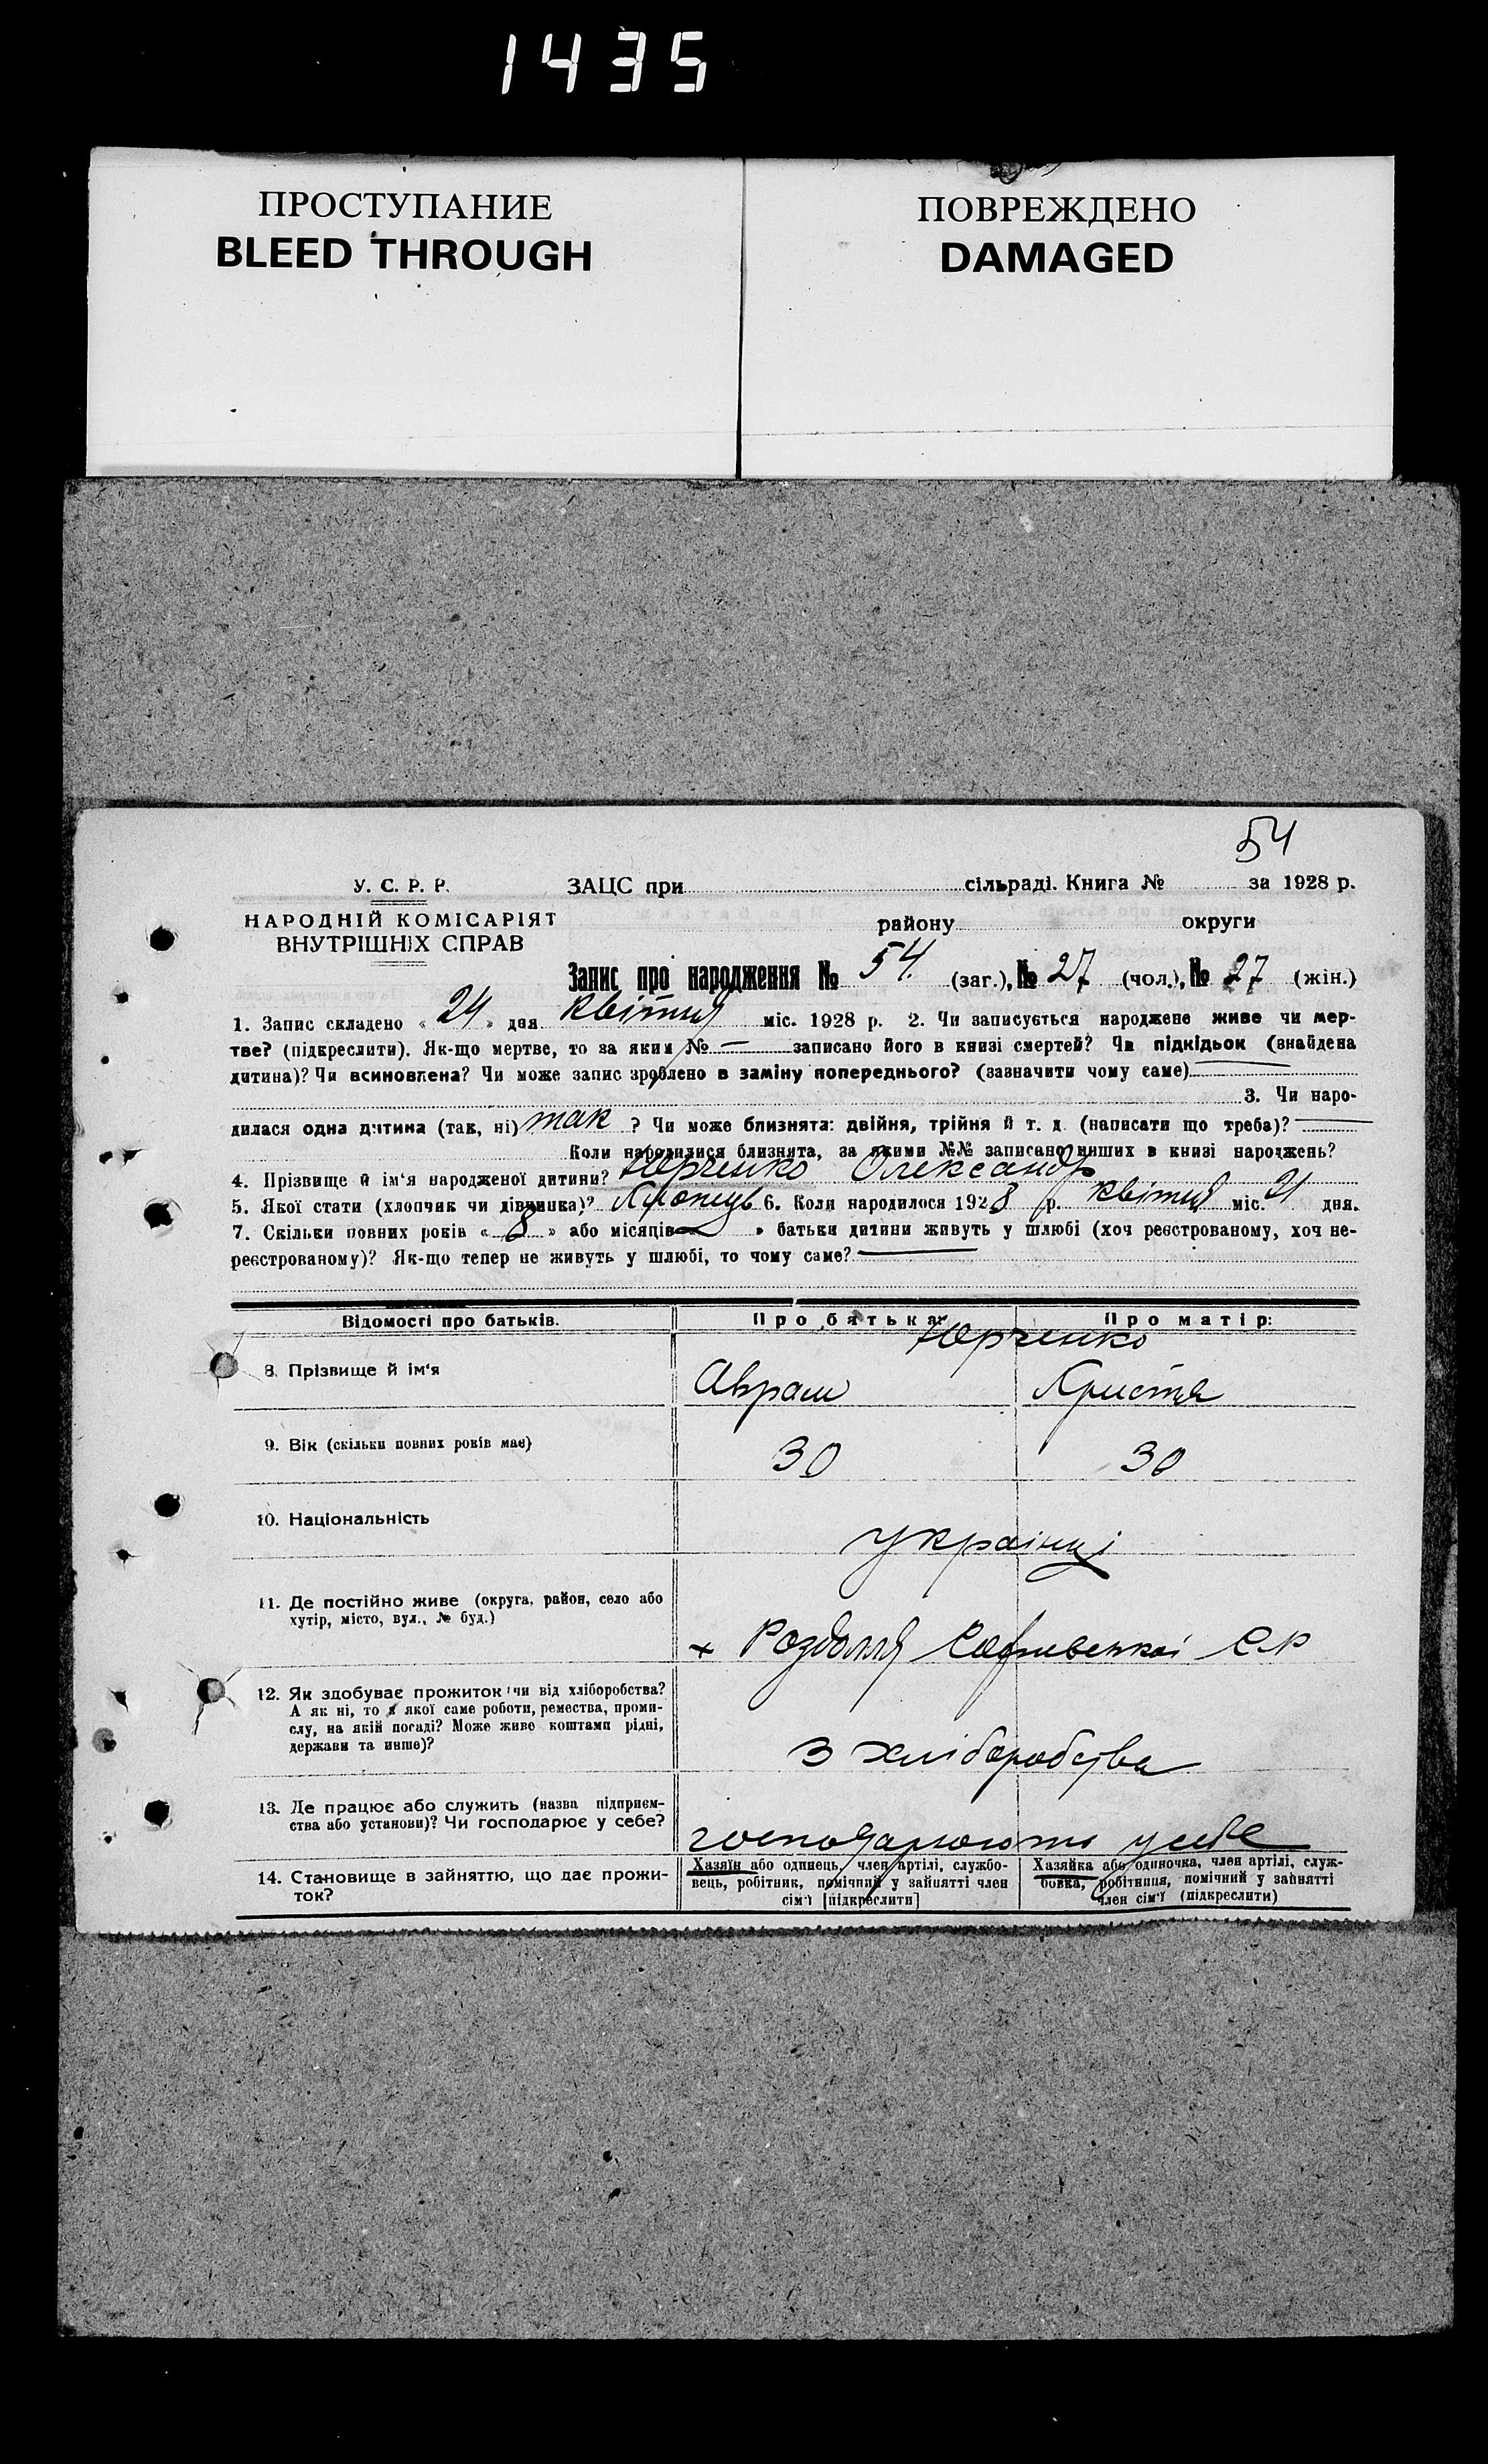 1435
ПРОСТУПАНИЕ
BLEED THROUGH
ПОВРЕЖДЕНО
DAMAGED
54
У. С. Р. Р.
НАРОДНІЙ КОМІСАРІЯТ
ВНУТРІШНІХ СПРАВ
ЗАЦС при сільраді. Книга № за 1928 р.
району округи
Запис про народження № 54. (заг.), № 27 (чол.), № 27 (жін.)
1. Запис складено « 24 » дня квітня міс. 1928 р. 2. Чи записується народжене живе чи мер-
тве? (підкреслити). Як-що мертве, то за яким № — записано його в книзі смертей? Чи підкідьок (знайдена
дитина)? Чи всиновлена? Чи може запис зроблено в заміну попереднього? (зазначити чому саме) —
3. Чи наро-
дилася одна дитина (так, ні) так ? Чи може близнята: двійня, трійня й т. д. (написати що треба)? —
Коли народилися близнята, за якими №№ записано инших в книзі народжень?
4. Прізвище й ім'я народженої дитини? Юрченко Олександр
5. Якої статі (хлопчик чи дівчинка)? Хлопець 6. Коли народилося 1928 р. квітня міс. 21 дня.
7. Скільки повних років « 8 » або місяців « — » батьки дитини живуть у шлюбі (хоч реєстрованому, хоч не-
реєстрованому)? Як-що тепер не живуть у шлюбі, то чому саме? —
Відомості про батьків. Про батька: Про матір:
Юрченко
8. Прізвище й ім'я Аврам Христя
9. Вік (скільки повних років має) 30 30
10. Національність українці
11. Де постійно живе (округа, район, село або
хутір, місто, вул., № буд.)
х Роздолля С.Р
12. Як здобуває прожиток чи від хліборобства?
А як ні, то з якої саме роботи, ремества, проми-
слу, на якій посаді? Може живе коштами рідні,
держави та инше)?
З хліборобства
13. Де працює або служить (назва підприєм-
ства або установи)? Чи господарює у себе?
господарюють у себе
14. Становище в зайняттю, що дає прожи-
ток?
Хазяїн або одинець, член артілі, службо-
вець, робітник, помічний у зайнятті член
сім'ї [підкреслити]
Хазяйка або одиночка, член артілі, служ-
бовка, робітниця, помічний у зайнятті
член сім'ї (підкреслити)